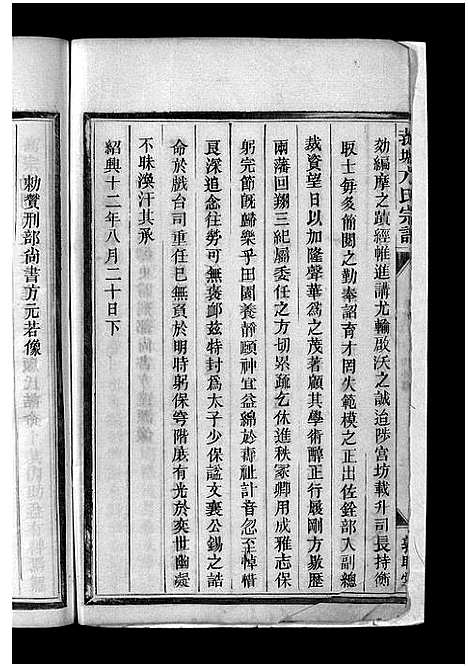 方氏宗譜
効編摩之蹟經帷進講尤輸啟沃之誠迨陟宫坊載升司長持衡
取士每多簡閱之勤奉詔育才罔失範模之正出佐銓部入副總
裁資望日以加隆聲華爲之茂著顧其學術醇正行履剛方歇歷
兩藩回翔三紀屬委任之方切累疏乞休進秩冢卿用成雅志保
躬完節旣歸樂乎田園養靜頤神宜益綿於壽祉訃音忽至悼惜
良深追念往勞可無褒卹兹特封爲太子少保諡文襄公錫之誥
命於戲台司重任已無負於明時躬保穹階庶有光於奕世幽礙
不昧渙汗其承
紹興十二年八月二十日下
勅贊刑部尙書方元若像